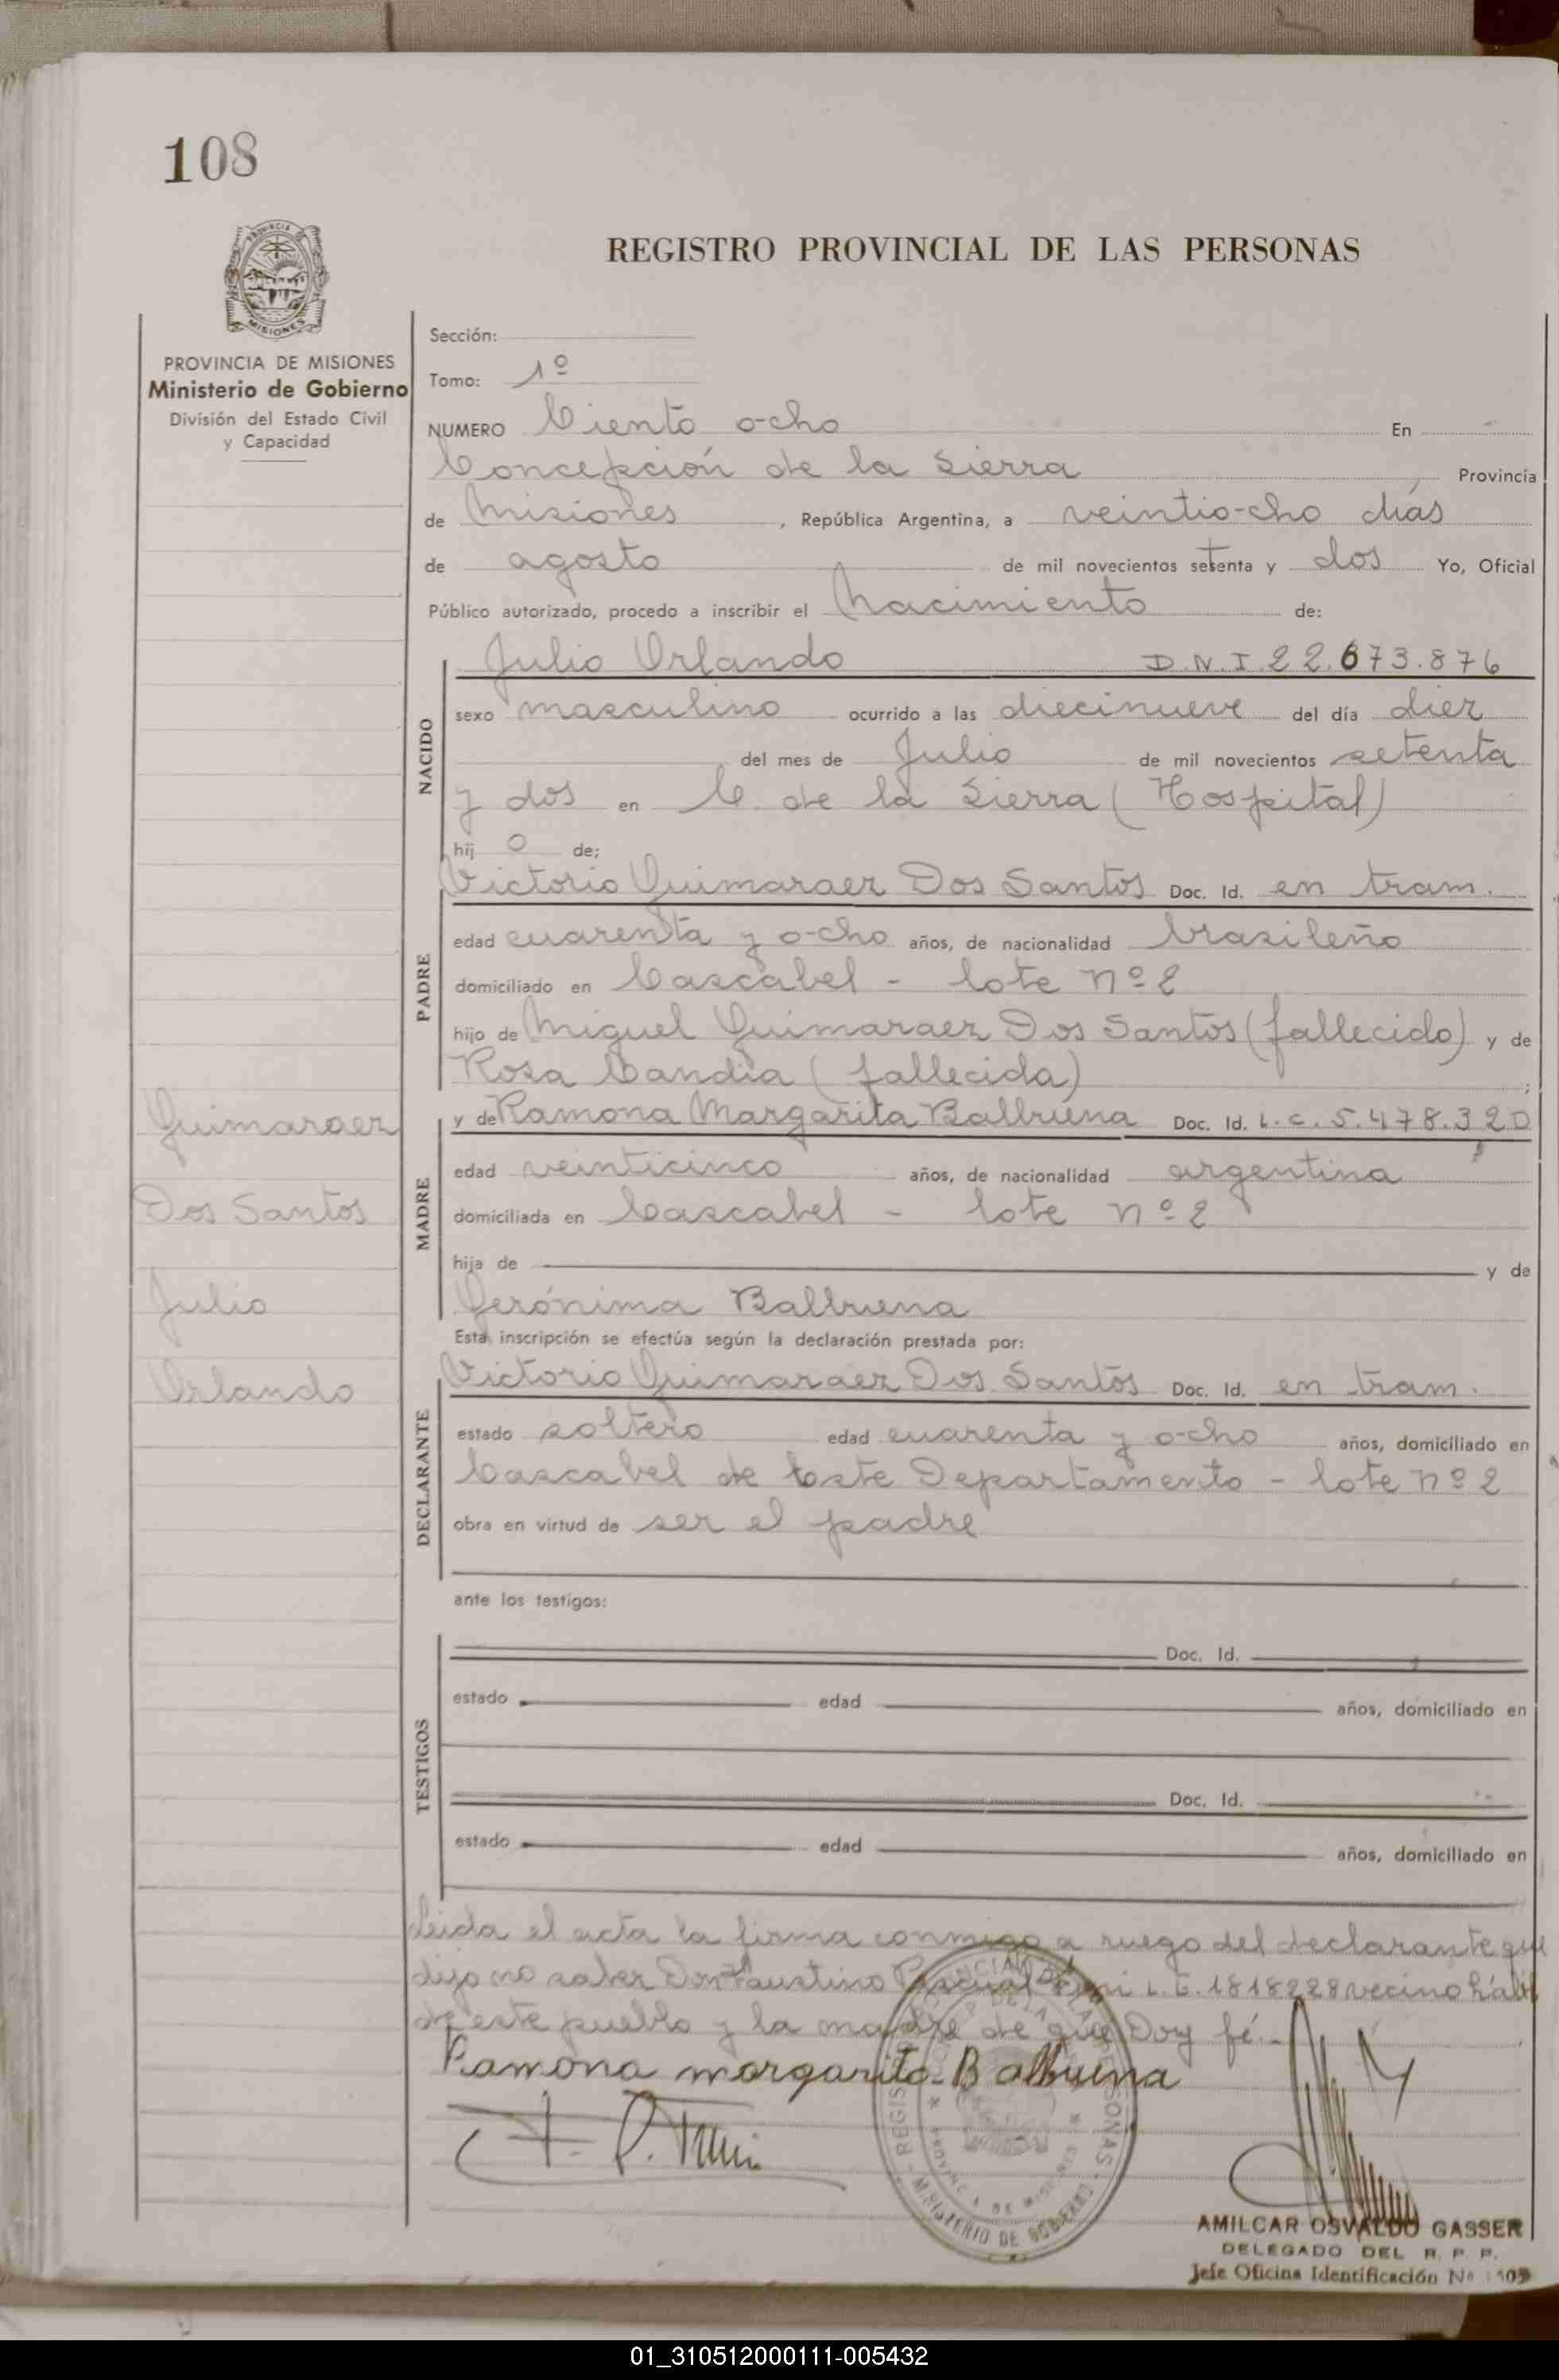 108
PROVINCIA DE MISIONES
Ministerio de Gobierno
División del Estado Civil
y Capacidad
REGISTRO PROVINCIAL DE LAS PERSONAS
Sección:
Tomo: 1º
NUMERO Ciento ocho En
Concepción de la Sierra Provincia
de Misiones, República Argentina, a veintiocho días
de agosto de mil novecientos setenta y dos Yo, Oficial
Público autorizado, procedo a inscribir el Nacimiento de:
NACIDO
Julio Orlando D.N.I 22.673.876
sexo masculino ocurrido a las diecinueve del día diez
del mes de Julio de mil novecientos setenta
y dos en C. de la Sierra (Hospital)
hij o de;
PADRE
Victorio Guimaraez Dos Santos Doc. Id. en tram.
edad cuarenta y ocho años, de nacionalidad brasileño
domiciliado en Cascabel - lote nº 2
hijo de Miguel Guimaraez Dos Santos (fallecido) y de
Rosa Candia (fallecida) ;
MADRE
y de Ramona Margarita Balbuena Doc. Id. L.C. 5.478.320
edad veinticinco años, de nacionalidad argentina
domiciliada en Cascabel - lote nº 2
hija de y de
Gerónima Balbuena
Guimaraez
Dos Santos
Julio
Orlando
Esta inscripción se efectúa según la declaración prestada por:
DECLARANTE
Victorio Guimaraez Dos Santos Doc. Id. en tram.
estado soltero edad cuarenta y ocho años, domiciliado en
Cascabel de Este Departamento - lote nº 2
obra en virtud de ser el padre
ante los testigos:
TESTIGOS
Doc. Id.
estado edad años, domiciliado en
Doc. Id.
estado edad años, domiciliado en
Leida el acta la firma conmigo a ruego del declarante que
dijo no saber Don Faustino Pascual L.E. 1818228 vecino hábil
de este pueblo y la madre de que Doy fé.-
Ramona margarita Balbuena
MINISTERIO DE GOBIERNO
AMILCAR OSVALDO GASSER
DELEGADO DEL R. P. P.
Jefe Oficina Identificación Nº
01_310512000111-005432